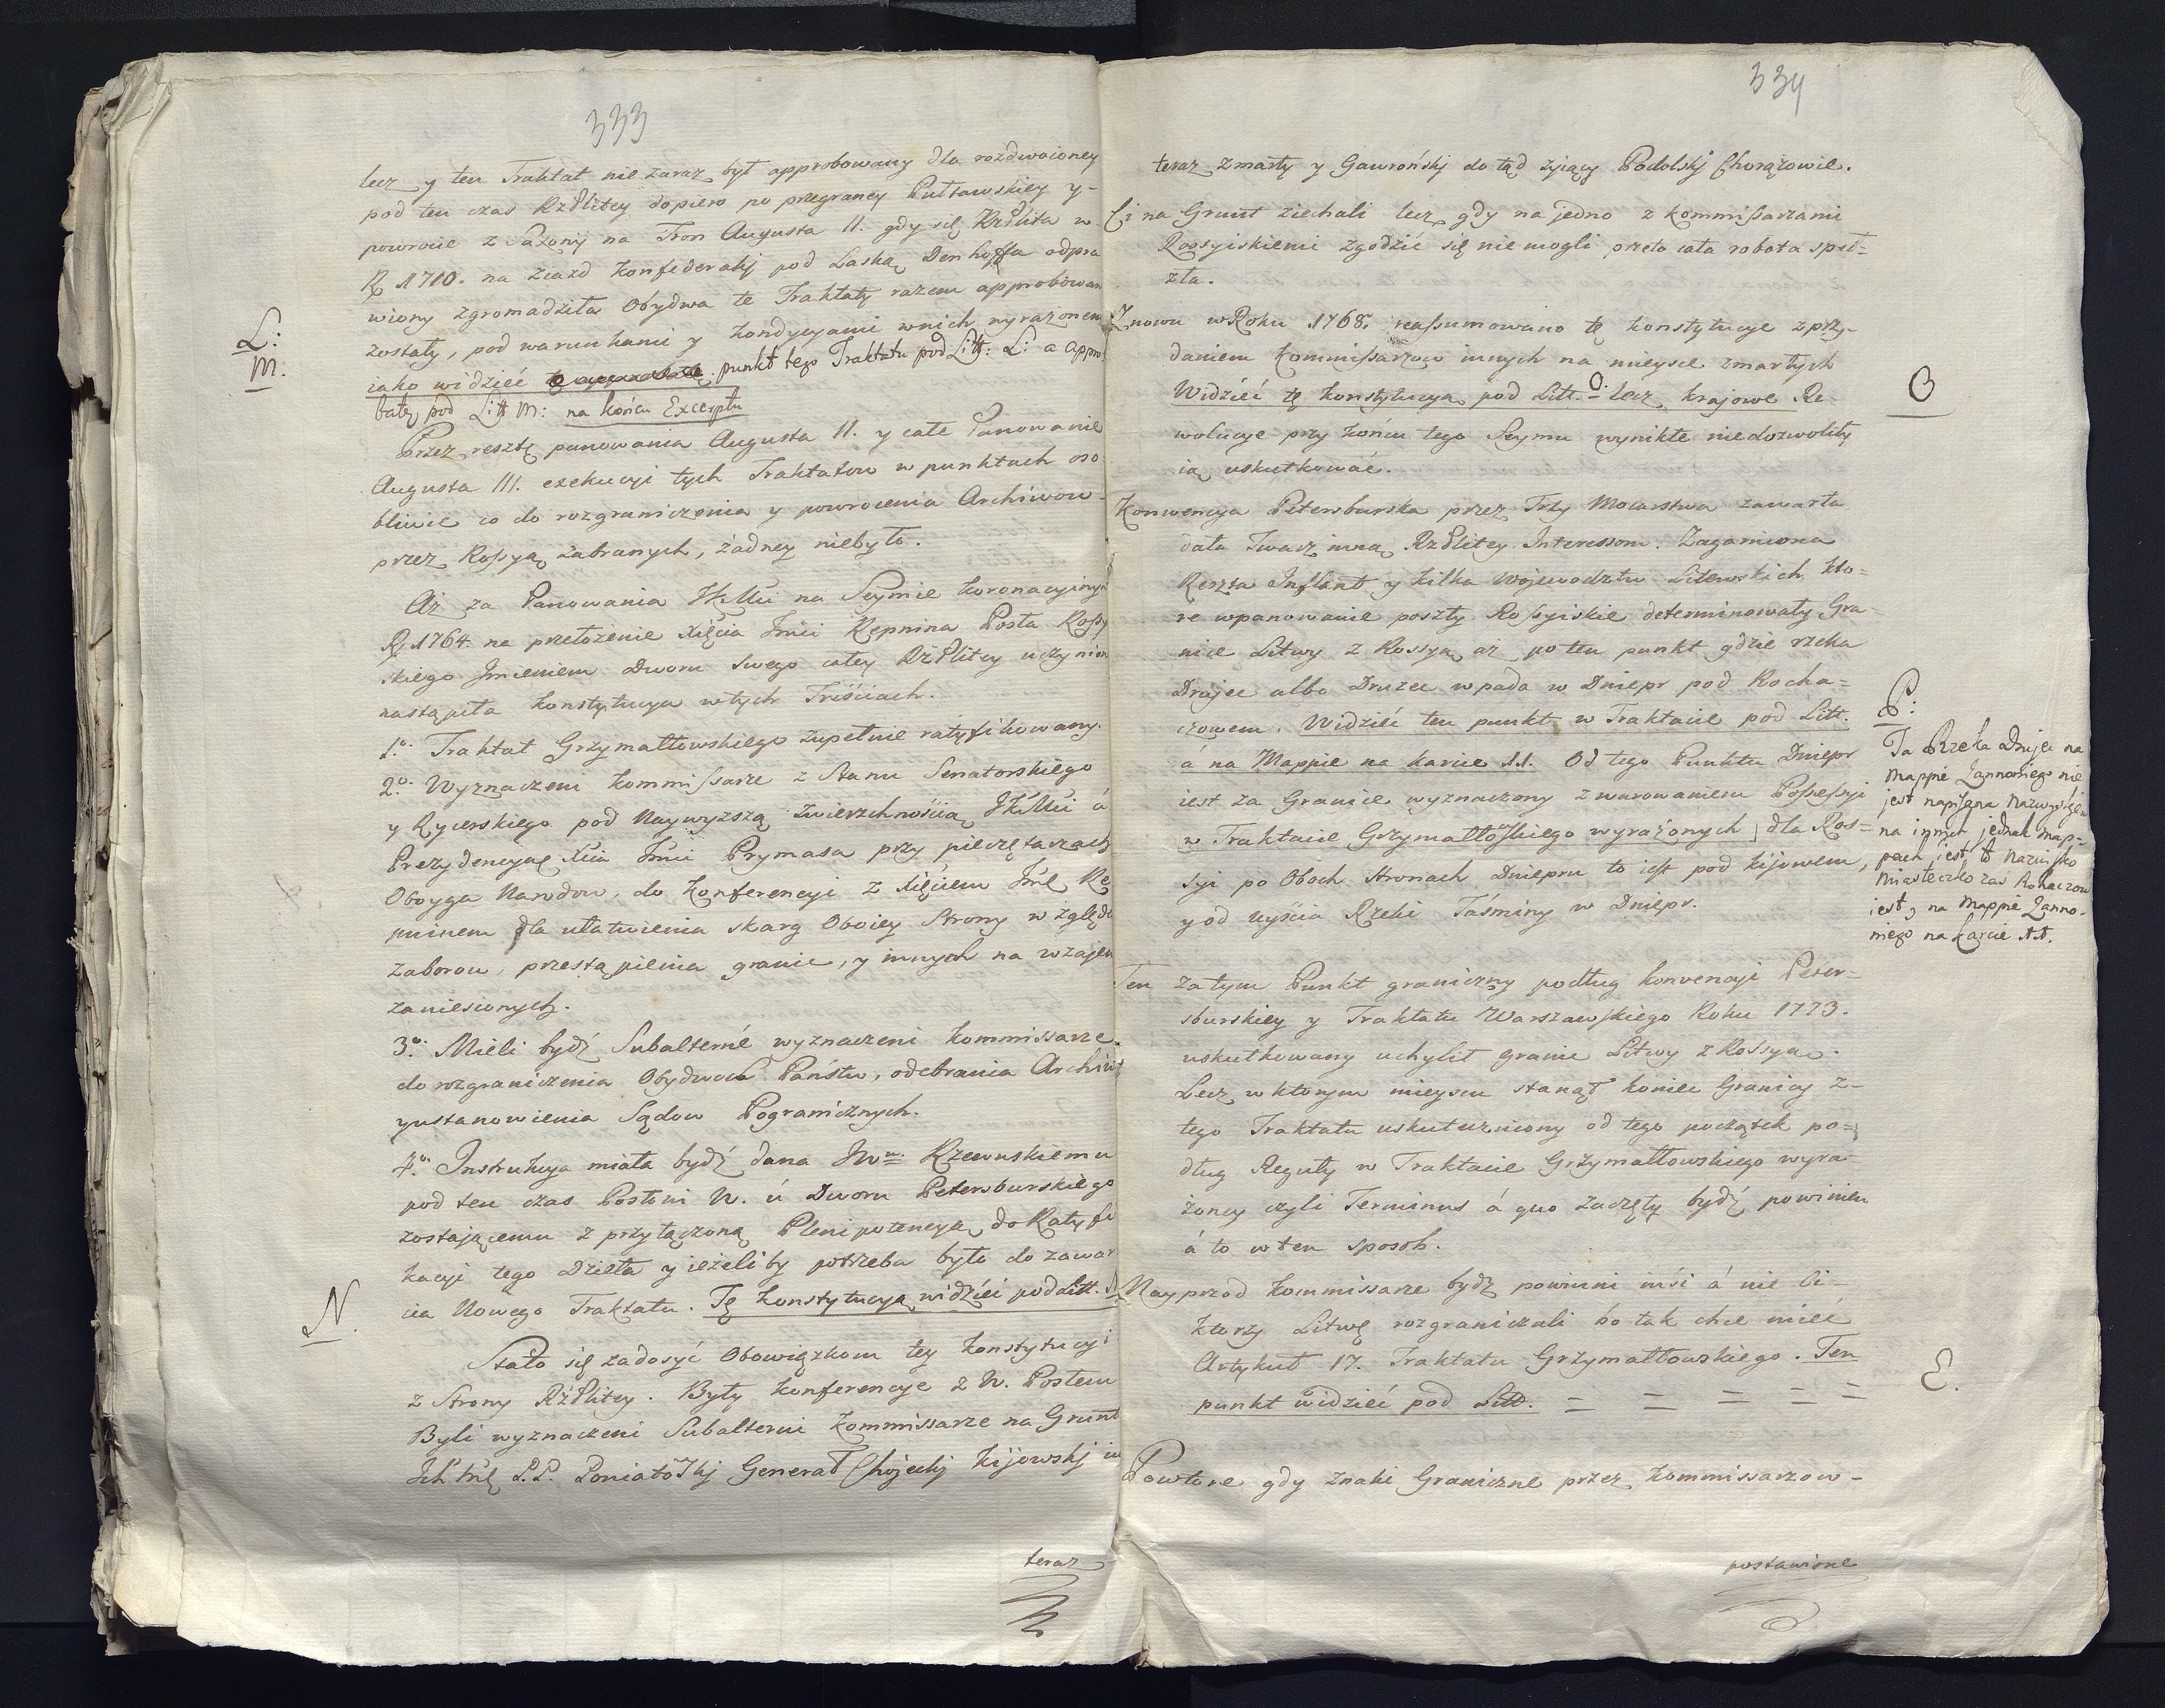 333
lecz y ten Traktat nie zaraz był approbowany dla rozdwoioney
pod ten czas RzPlitey dopiero po przegraney Pułtawskiey y-
powrocie z Saxonij na Tron Augusta II. gdy się RzPlita w
R 1710. na Ziazd Konfederakij pod Laską Denhoffa odpra
wiony zgromadziła Obydwa te Traktaty razem approbowan
zostały, pod warunkami y kondycyami wnich wyrażonemi
L:
M.
iako widzieć punkt tego Traktatu pod Litt: L: a appro
batę pod Litt M: na końcu Excerptu
Przez resztę panowania Augusta II. y całe Panowanie
Augusta III. exekucyi tych Traktatow w punktach oso
bliwie co do rozgraniczenia y powrocenia Archiwow
przez Rossyą zabranych, żadney niebyło.
Aż za Panowania JKMci na Seymie Koronacyinym
R. 1764. na przełożenie Xięcia Jmci Repnina Posła Rossy
skiego Jmieniem Dworu swego całey RzPlitey uczynion
nastąpiła konstytucya wtych Treściach.
1o. Traktat Grzymałtowskiego zupełnie ratyfikowany.
2o. Wyznaczeni Kommissarze z Stanu Senatorskiego
y Rycerskiego pod Naywyższą zwierzchnością JKMci á
Prezydencyą Xcia Jmci Prymasa przy pieczętarzach
Oboyga Narodow, do Konferencyi z Xięciem Jmć Re
pninem dla ułatwienia skarg Oboiey Strony względe
zaborow, przestąpienia granic, y innych na wzajem
zaniesionych.
3o. Mieli bydź Subalterné wyznaczeni Kommissarze
do rozgraniczenia Obydwoch Państw, odebrania Archiw
yustanowienia Sądow Pogranicznych.
4o. Instrukcya miała bydź dana JWu. Rzewuskiemu
pod ten czas Posłowi N. ú Dworu Petersburskiego
zostającemu z przyłączoną Plenipotencyą do Ratyfi
kacyi tego Dzieła y ieżeliby potrzeba było do zawar
N.
cia Nowego Traktatu. Tę Konstytucyą widzieć pod Litt. N
Stało się zadosyć Obowiązkom tey Konstytucyi
z Strony RzPlitey. Były Konferencye z N. Posłem
Byli wyznaczeni Subalterni Kommissarze na Grunt
P.P. Poniatowskj Generał Choješkij Kijowskj
teraz
334
teraz zmarły y Gawrońskj do tąd żyiący Podolskj Chorążowie.
Ci na Grunt ziechali lecz gdy na jedno z Kommissarzami
Rossyiskiemi zgodzić się nie mogli przeto cała robota speł-
zła.
Znowu wRoku 1768. reassumowano tę konstytucye zprzy-
daniem Kommissarzow innych na mieysce zmarłych
Widzieć tę konstytucyą pod Litt. O. lecz krajowe Re-
O
wolucye przy końcu tego Seymu wynikłe niedozwoliły
ią uskutkować.
Konwencya Petersburska przez Trzy Mocarstwa zawarta
dała Twarz inną RzPlitey Interessom. Zagarniona
Reszta Inflant y kilka Woiewodztw Litewskich kto-
re wpanowanie poszły Rossyiskie determinowały Gra-
nice Litwy z Rossyą aż po ten punkt gdzie rzeka
Drujec albo Druzec wpada w Dniepr pod Rocha=
czowem. Widzieć ten punkt w Traktacie pod Litt.
P:
á na Mappie na karcie 11. Od tego Punktu Dniepr
iest za Granice wyznaczony zwarowaniem Possessyi
w Traktacie Grzymałtowskiego wyrażonych dla Ros=
syi po Oboch stronach Dniepru to iest pod Kijowem,
y od uyścia Rzeki Taśminy w Dniepr.
Ta Rzeka Drujec na
Mappie Zannoniego nie
jest napisana Nazwyskiem
na innych jednak Map=
pach jest to Nazwisko
Miasteczko zas Rohaczow
iest, na Mappie Zanno-
niego na karcie 11.
Ten zatym Punkt graniczny podług konvencyi Peter-
sburskiey y Traktatu Warszawskiego Roku 1773.
uskutkowany uchylił granice Litwy z Rossyą.
Lecz w ktorym mieyscu stanął koniec Granicy z-
tego Traktatu uskuteczniony od tego początek po=
dług Reguły w Traktacie Grzymałtowskiego wyra-
żoney czyli Terminus á quo zaczęty bydź powinien
á to w ten sposob.
Nayprzod Kommissarze bydź powinni inśi á nie Ci-
ktorzy Litwę rozgraniczali bo tak chce mieć
Artykuł 17. Traktatu Grzymałtowskiego. Ten
punkt widzieć pod Litt. = = = = =
E.
Powtore gdy znaki Graniczne przez Kommissarzow-
postawione